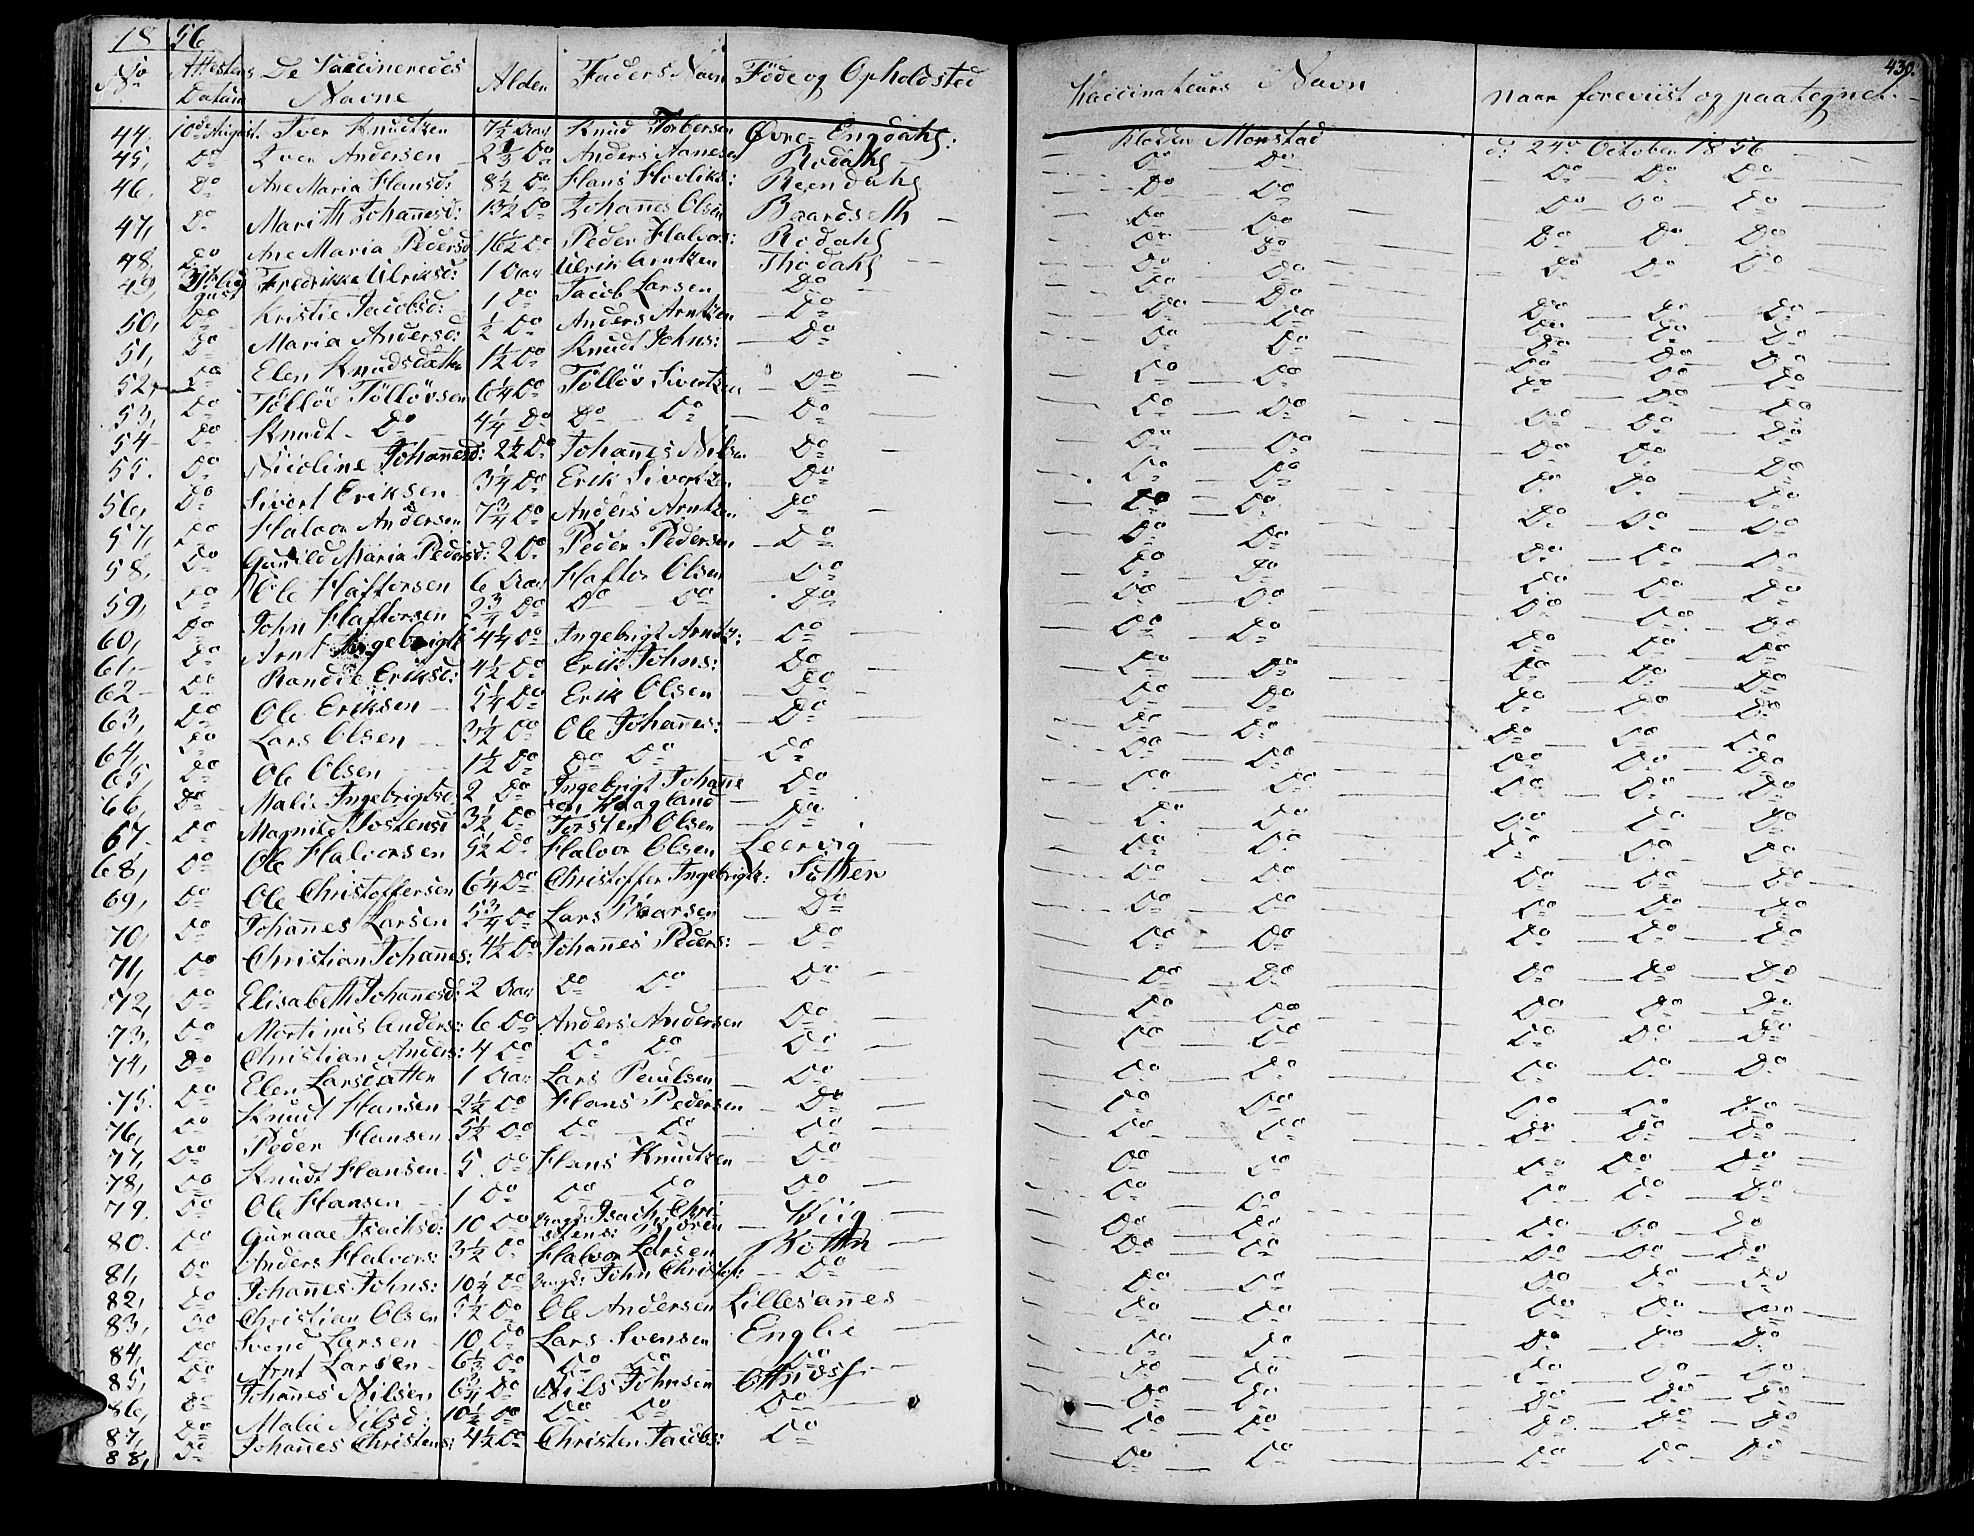 1856
430.
No Attestens Datum De Vaccineredes Navne Alder Faders Navn Föde og Opholdsted Vaccinateurs Navn Naar foreviist og paategnet.
44. 10de August. Iver Knudtzen 7½ Aar Knud Torbersen Øvre-Engdahl: Klokker Monstad d: 24de October 1856
45, Do Iver Andersen 2⅓ Do Anders Aanesen Rødahl Do Do Do Do Do
46, Do Ane Maria Hansd: 8½ Do Hans Hovliks: Reendahl Do Do Do Do Do
47, Do Marith Johañesd: 13½ Do Johañes Olsen Baardseth Do Do Do Do Do
48, Do Ane Maria Pedersd 16½ Do Peder Halvors: Rødahl Do Do Do Do Do
49, 31te August Fredrikke Ulriksd: 1 Aar Ulrik Arntzen Thodahl Do Do Do Do Do
50, Do Kristie Jacobsd: 1 Do Jacob Larsen Do Do Do Do Do Do
51, Do Maria Andersd: ½ Do Anders Arntzen Do Do Do Do Do Do
52, Do Elen Knudsdatter 1½ Do Knudt Johns: Do Do Do Do Do Do
53, Do Tölløv Tölløvsen 6¼ Do Tölløv Sivertzen Do Do Do Do Do Do
54 Do Knudt Do 4¼ Do Do Do Do Do Do Do Do Do
55. Do Nicoline Johañesd: 2½ Do Johañes Nilsen Do Do Do Do Do Do
56, Do Sivert Eriksen 3¼ Do Erik Sivertzen Do Do Do Do Do Do
57, Do Halvor Andersen 7¾ Do Anders Arntzen Do Do Do Do Do Do
58, Do Gunild Maria Pedersd: 2 Do Peder Pedersen Do Do Do Do Do Do
59, Do Ole Haftorsen 6 Aar Haftor Olsen Do Do Do Do Do Do
60, Do John Haftorsen 2¾ Do Do Do Do Do Do Do Do Do
61, Do Arnt Ingebrigt 4¼ Do Ingebrigt Arntz: Do Do Do Do Do Do
62 Do Randie Eriksd: 4½ Do Erik Johns: Do Do Do Do Do Do
63, Do Ole Eriksen 5¼ Do Erik Olsen Do Do Do Do Do Do
64, Do Lars Olsen 3½ Do Ole Johañes: Do Do Do Do Do Do
65, Do Ole Olsen 1½ Do Do Do Do Do Do Do Do Do
66, Do Malie Ingebrigtsd: 2 Do Ingebrigt Johañesen Haagland Do Do Do Do Do Do
67. Do Magnild Tostensd 3½ Do Torsten Olsen Do Do Do Do Do Do
68, Do Ole Halvorsen 5½ Do Halvor Olsen Leervig Do Do Do Do Do
69, Do Ole Christoffersen 6¼ Do Christoffer Ingebrigts: Søther Do Do Do Do Do
70, Do Johañes Larsen 5¾ Do Lars Do Do Do Do Do Do
71, Do Christian Johañes: 4½ Do Johañes Peders: Do Do Do Do Do Do
72, Do Elisabeth Johañesd: 2 Aar Do Do Do Do Do Do Do Do
73, Do Mortinus Anders: 6 Do Anders Andersen Do Do Do Do Do Do
74, Do Christian Anders: 4 Do Do Do Do Do Do Do Do Do
75. Do Elen Larsdatter 1 Aar Lars Paulsen Do Do Do Do Do Do
76, Do Knudt Hansen 2½ Do Hans Pedersen Do Do Do Do Do Do
77, Do Peder Hansen 5½ Do Do Do Do Do Do Do Do Do
78, Do Knudt Hansen 5 Do Hans Knudtzen Do Do Do Do Do Do
79. Do Ole Hansen 1 Do Do Do Do Do Do Do Do Do
80. Do Guraae Isachsd: 10 Do Isach Christens: Do Do Do Do Do
81, Do Anders Halvors: 3½ Do Halvor Larsen Do Do Do Do Do
82, Do Johañes Johns: 10¼ Do John Christof: Do Do Do Do Do Do
83, Do Christian Olsen 5½ Do Ole Andersen Lillesañes Do Do Do Do Do
84, Do Svend Larsen 10 Do Lars Svensen Englie Do Do Do Do Do
85, Do Arnt Larsen 6½ Do Do Do Do Do Do Do Do Do
86, Do Johañes Nilsen 6¾ Do Nils Johnsen Do Do Do Do Do
87, Do Malie Nilsd: 10½ Do Do Do Do Do Do Do Do Do
88, Do Johañes Christens: 4½ Do Christen Jacobs: Do Do Do Do Do Do